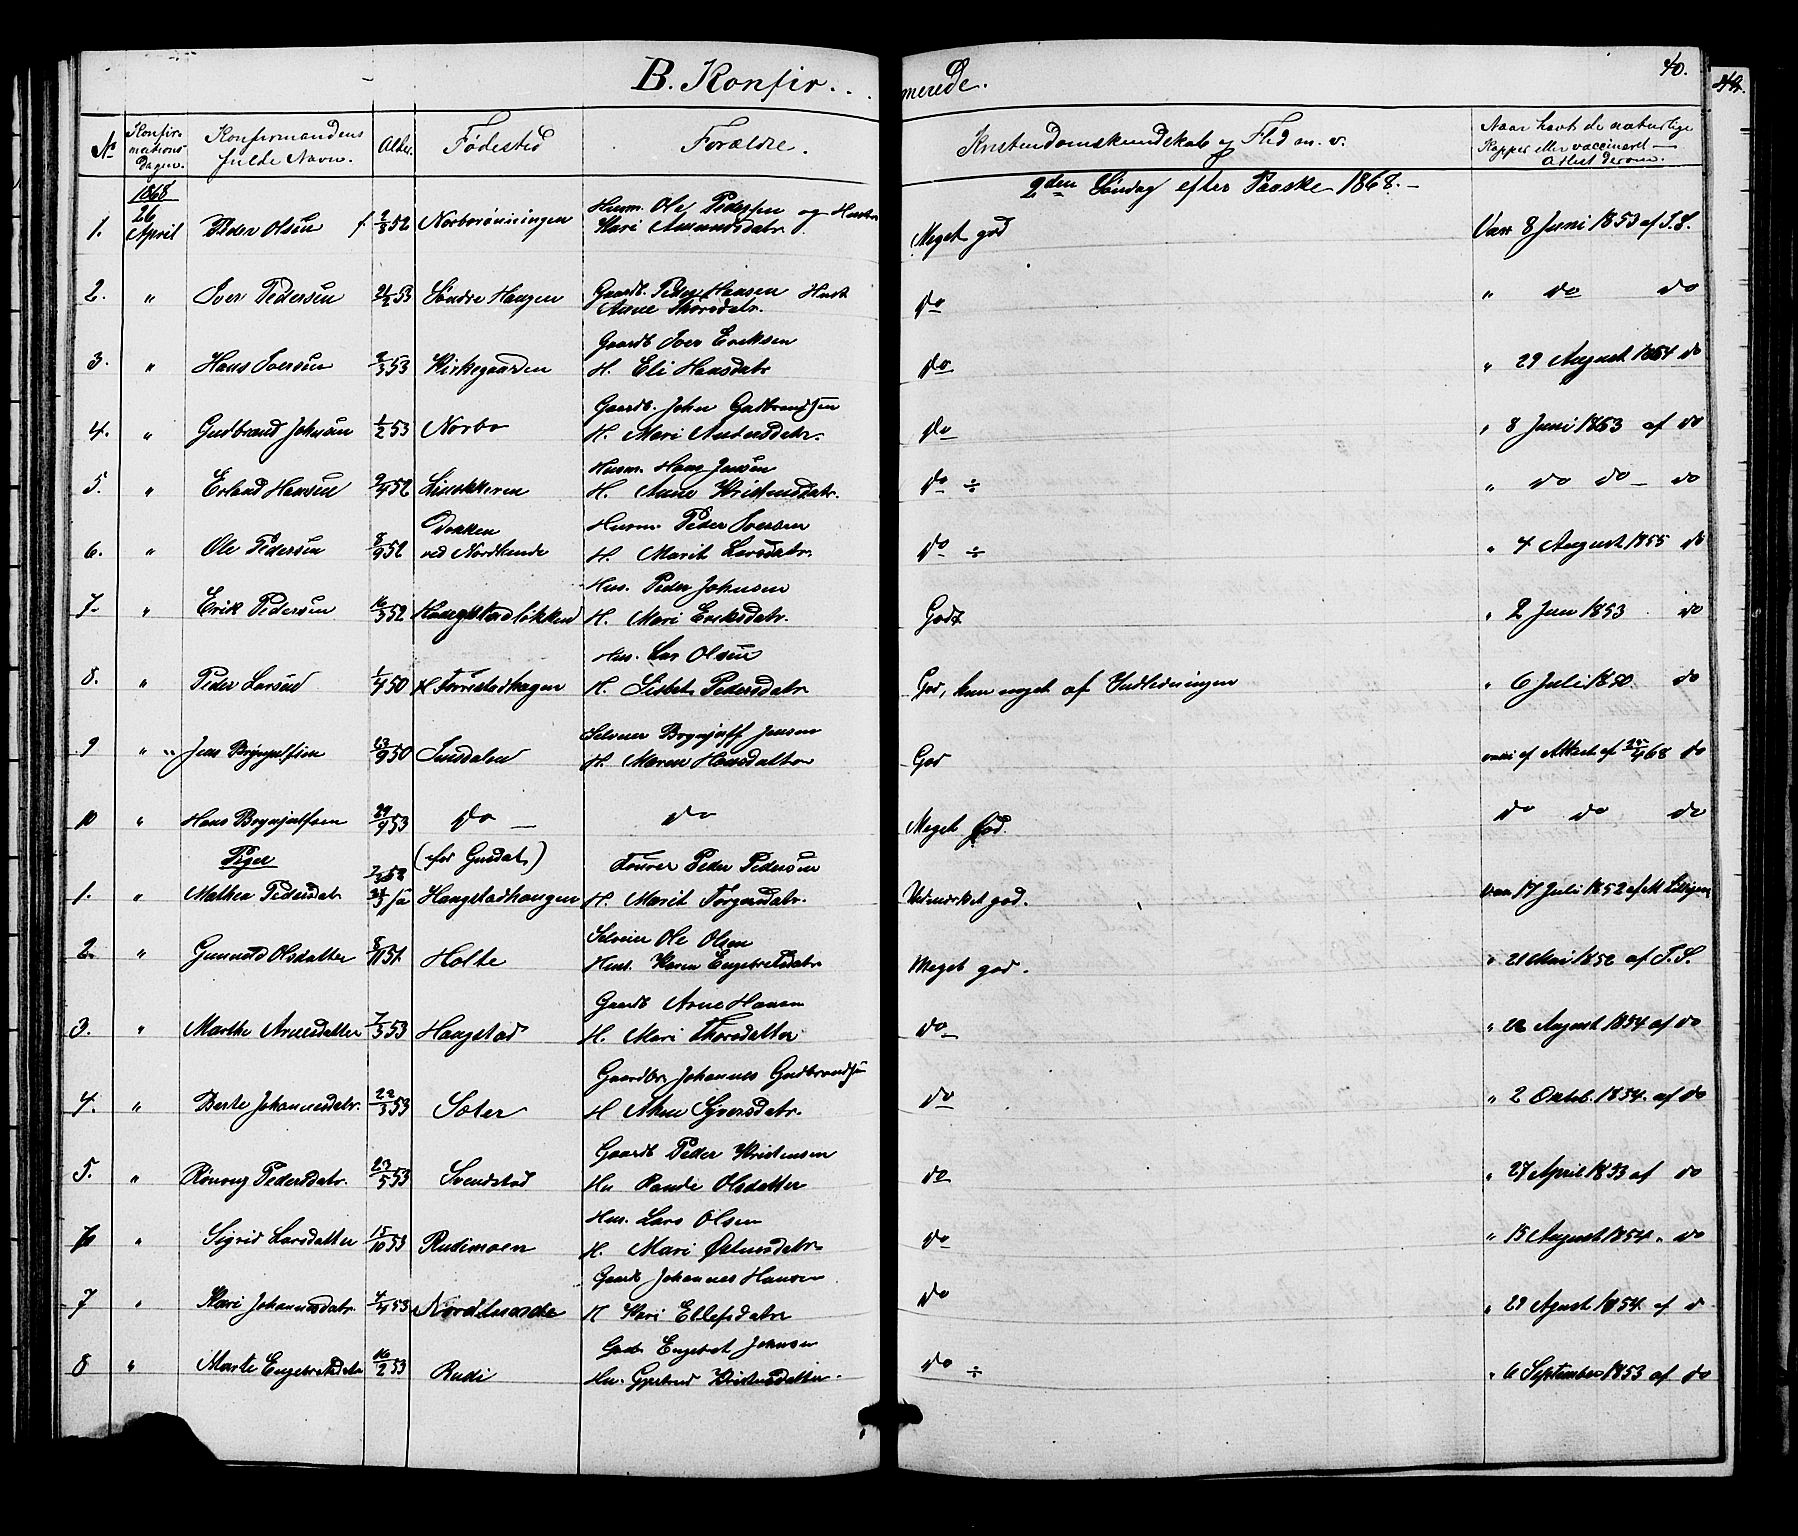 B. Konfir...merede.
40.
No
Konfirmations-Dagen.
Konfirmandens fulde Navn.
Alder
Fødested
Forældre.
Kristendomskundskab og Flid m. v.
Naar havt de naturlige Kopper eller vaccineret — Attest derom.
1868
2den Søndag efter Paaske 1868. —
1. 26 April Peder Olsen f 2/3 52 Norbrønningen Husm. Ole Pedersen og Hustr Kari Amundsdatr. Meget god Vacc 8 Juni 1853 af T.S.
2. " Iver Pedersen 21/2 53 Søndre Haugen Gaardb. Peder Hansen Hust Anne Thorsdatr. do " do do
3. " Hans Iversen 2/3 53 Kirkegaarden Gaardb Iver Eriksen H. Eli Hansdatr do " 29 August 1854 do
4. " Gudbrand Johnsen 1/2 53 Norbo Gaardb. John Gudbrandsen H. Mari Andersdatr. do " 8 Juni 1853 af do
5. " Erland Hansen 2/4 52 Husm. Hans Jensen H. Anne Kristensdatr. do ÷ " do do — do
6. " Ole Pedersen 8/9 52 Bakken ved Nordlunde Husm. Peder Iversen H. Marit Larsdatr. do ÷ " 4 August 1855 do
7. " Erik Pedersen 16/3 52 Haugstadløkken Hus. Peder Johnsen H. Mari Eriksdatr. Godt " 2 Jun 1853 do
8. " Peder Larsen 1/4 50 Torrestadhagen Hus. Lar Olsen H. Lisbet Pedersdatr God, kun noget af Indledningen " 6 Juli 1850. do
9 " Jens Brynjulfsen 23/9 50 Inndalen Selveier Brynjulf Jensen H. Maren Hansdatter God vacc af Attest af 25/4 68 do
10 " Hans Brynjulfsen 29/9 53 do — do Meget god. do do do
Piger
1. " Mathea Pedersdatr Haugstadhaugen Peder Pedersen H. Marit Torgersdatr. Udmerket god. vac 17 Juli 1852 af
2. " Gunnild Olsdatter 8/11 51 Holte Selveier Ole Olsen Hust. Karen Engebretsdatr Meget god. " 21 Mai 1852 af T.S.
3. " Marthe Arnesdatter 7/3 53 Haugstad Gaardb Arne Hansen H. Mari Thorsdatter do " 22 August 1854 af do
4. " Berte Johannesdatr. 22/3 53 Soter Gaardbr. Johannes Gudbrandsen H Sjversdatr. do " 2 Oktob. 1854. af do
5. " Rønnoug Pedersdatr. 23/5 53 Svendstad Gaardb Peder Kristensen Hu Rande Olsdatter do " 27 April 1853 af do
6 " Sigrid Larsdatter 15/10 53 Rudimoen Hus. Lars Olsen H. Mari Østensdatr do " 15 August 1854. " do
7 " Kari Johannesdatr. 4/4 53 Nordlunde Gaardb Johannes Hansen H Kari Ellefsdatr do " 29 Agust 1854 af d
8 " Marte Engebretsdatr 16/2 53 Rudi Gaardbr Engebret Johnsen Hu. Gjertrud Kristensdatter. do ÷ " 6 September 1853 af do